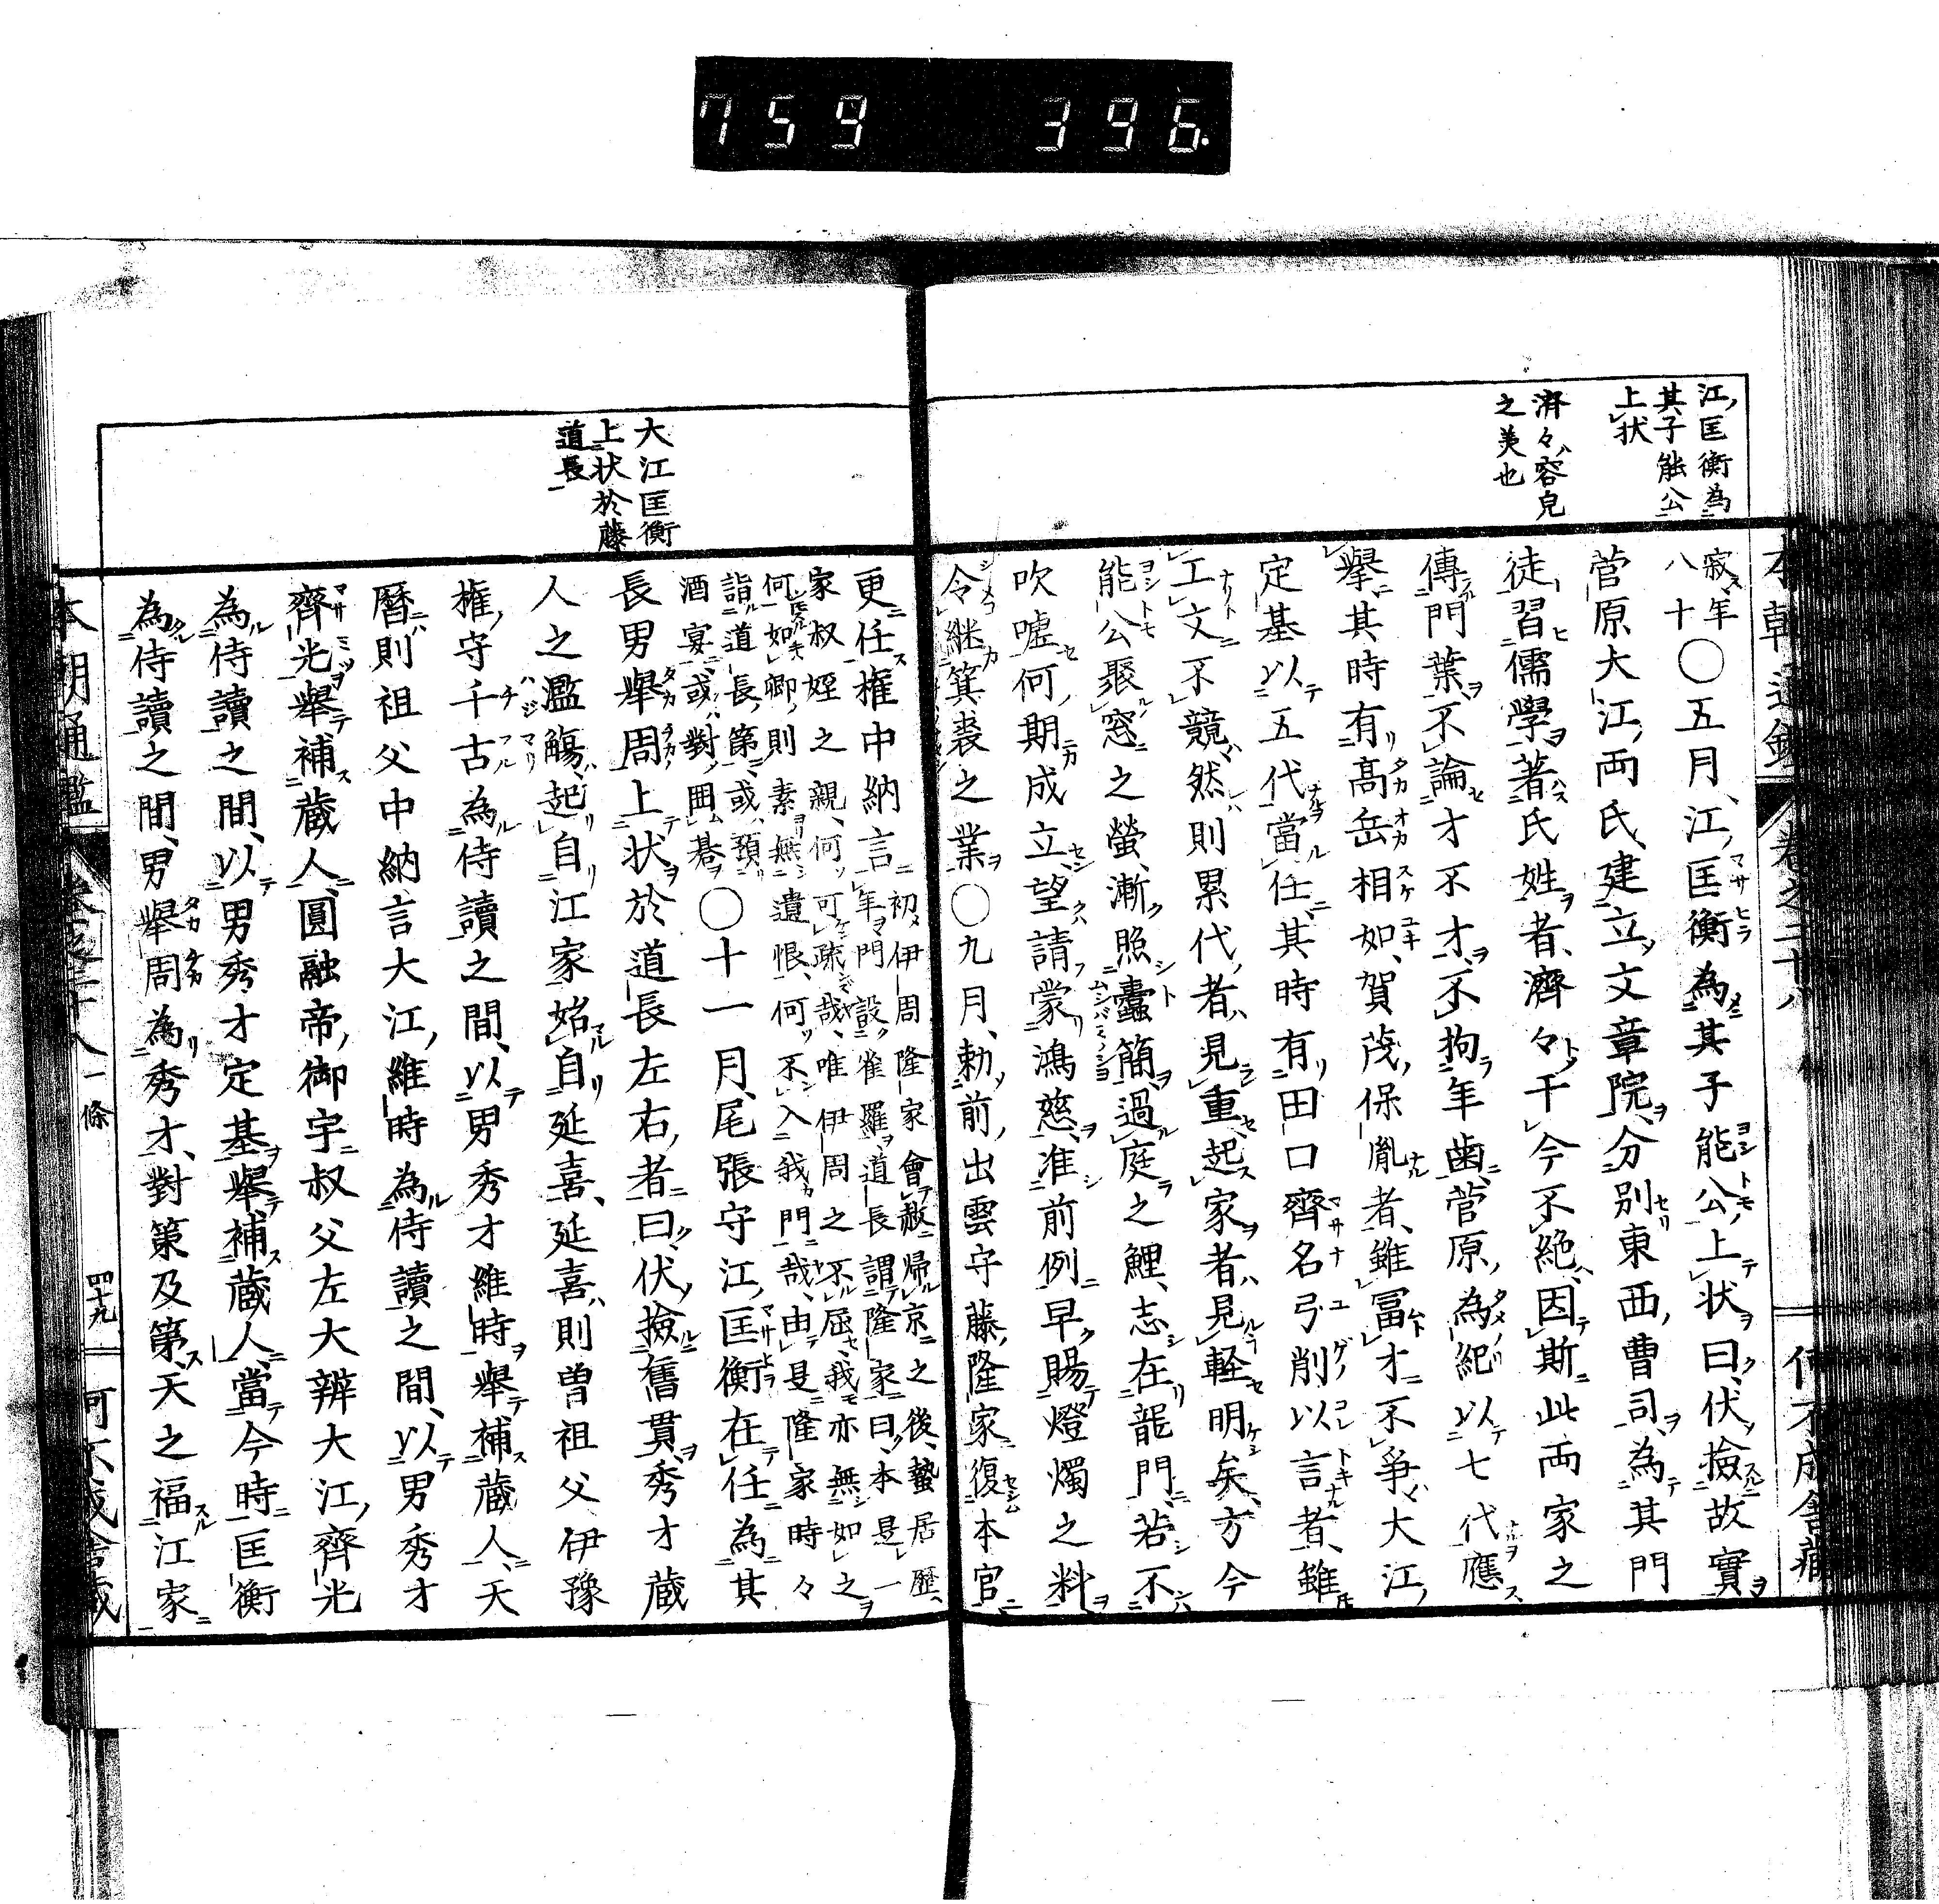 759 396.
江匡衡為
其子能公
上状
濟々容皃
之美也
寂年
八十
〇五月、江匡衡為其子能公上状曰、伏撿故實
菅原大江両氏、建立文章院、分別東西曹司、為其門
徒習儒學、著氏姓者、濟々于今不絶、因斯此両家之
傳門葉、不論才不才、不拘年歯、菅原為紀以七代應
擧、其時有髙岳相如、賀茂保胤者、雖冨才不爭、大江
定基以五代當任、其時有田口齊名弓削以言者、雖
工文不競、然則累代者見重、起家者見軽明矣、方今
能公聚窓之螢、漸照蠹簡、過庭之鯉、志在龍門、若不
吹嘘何期成立、望請蒙鴻慈、准前例早賜燈燭之料、
令継箕裘之業〇九月、勅前出雲守藤隆家復本官
更任権中納言
初伊周隆家會赦帰京之後、蟄居歴
年門設雀羅、道長謂隆家曰、本是一
家叔姪之親、何可疎哉、唯伊周之不屈我亦無如之
何如卿則素無遺恨、何不入我門哉、由是隆家時々
詣道長第、或預
酒宴、或對囲碁
〇十一月、尾張守江匡衡在任為其
長男擧周上状於道長左右者曰、伏撿舊貫、秀才蔵
人之濫觴、起自江家、始自延喜、延喜則曽祖父伊豫
権守千古為侍讀之間、以男秀才維時擧補蔵人、天
暦則祖父中納言大江維時為侍讀之間、以男秀才
齊光擧補蔵人、圓融帝御宇叔父左大辨大江齊光
為侍讀之間、以男秀才定基擧補蔵人、當今時匡衡
為侍讀之間、男擧周為秀才、對策及第、天之福江家
大江匡衡
上状於藤
道長
本朝通鑑 巻之二十八 一條 四十九